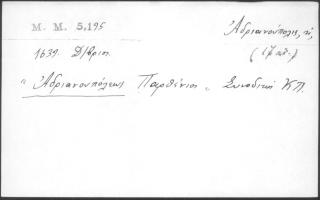 M. M. 5,195
Ἀδριανούπολις, ἡ,
1639. Δ/βριος.
"Ἀδριανουπόλεως Παρθένιος" Συνοδικὴ ΚΠ.